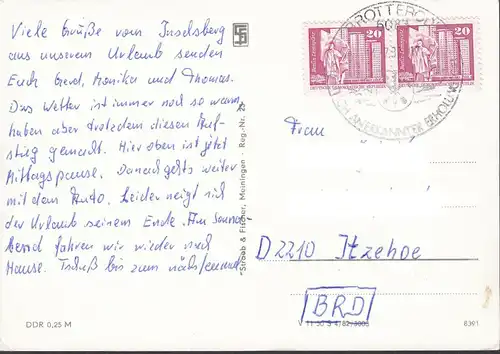 Viele Grüße vom Inselsberg
aus unserem Urlaub senden
Euch Gerd, Monika und Thomas.
Das Wetter ist immer noch so warm,
haben aber trotzdem diesen Auf-
stieg gemacht. Hier oben ist jetzt
Mittagspause. Danach gehts weiter
mit dem Auto. Leider neigt sich
der Urlaub seinem Ende. Am Sonna-
bend fahren wir wieder nach
Hause. Tschüß bis zum nächstenmal
DDR 0,25 M
Straub & Fischer, Meiningen - Reg.-Nr.
BROTTERODE
ANERKANNTER ERHOLUNGS
20
20
DEUTSCHE DEMOKRATISCHE REPUBLIK
DEUTSCHE DEMOKRATISCHE REPUBLIK
Frau
D 2210 Itzehoe
BRD
V 11 50 S 4/82/3005
8391